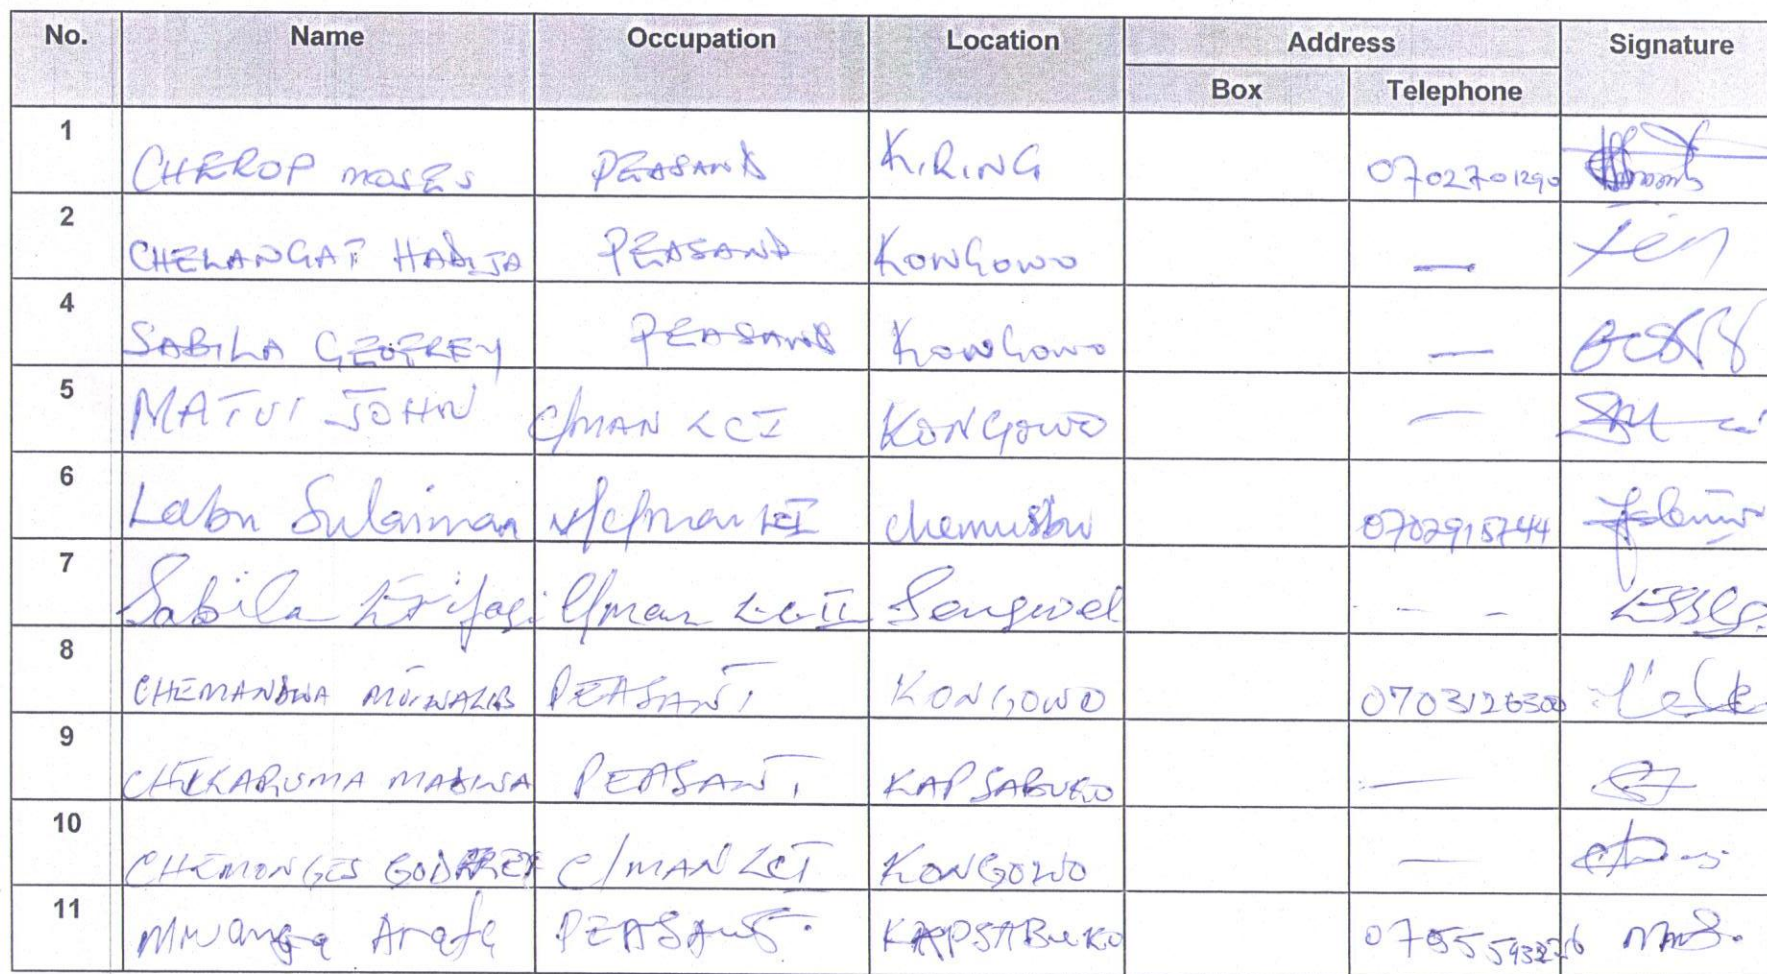 No. Name Occupation Location Address Signature
Box Telephone
1 CHEROP MOSES PEASANT KIRING 0702701290
2 CHELANGAT HADIJA PEASANT KONGOWO —
4 SABILA GEOFREY PEASANT KONGOWO —
5 MATUI JOHN C/MAN LCI KONGOWO —
6 Labu Sulaiman V/C/man LCI 0702915744
7 Sabila C/man LCII Sengwel - - -
8 CHEMANDWA PEASANT KONGOWO 0703126300
9 PEASANT KAPSABUKO —
10 CHEMONGES GODFREY C/MAN LCI KONGOWO —
11 Arafa PEASANT. KAPSABUKO